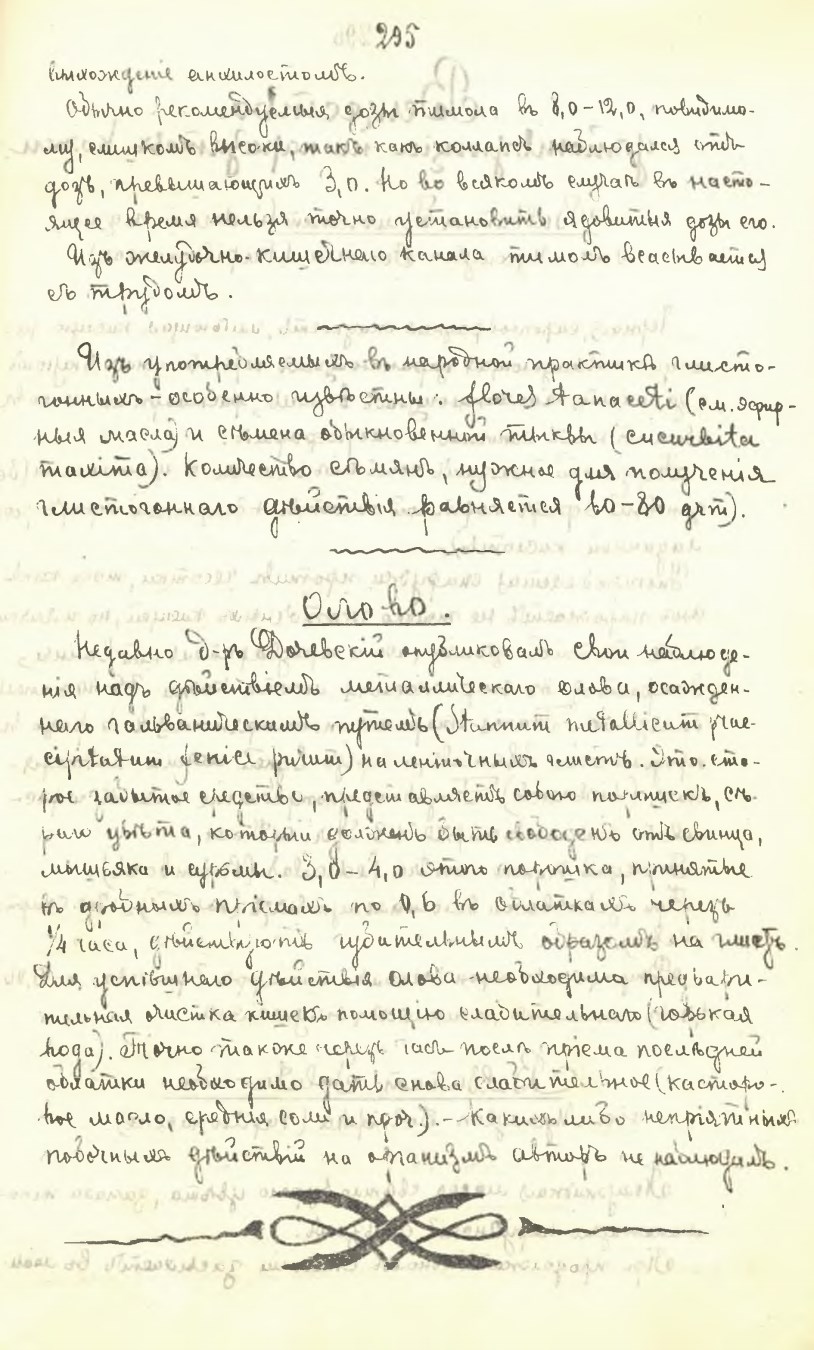 295
выхожденiе анкилостомъ.
Обычно рекомендуемыя дозы тимола въ 8,0–12,0, повидимо-
му, слишкомъ высоки, такъ какъ коллапсъ наблюдался отъ
дозъ, превышающихъ 3,0. Но во всякомъ случаѣ въ насто-
ящее время нельзя точно установить ядовитыя дозы его.
Изъ желудочно-кишечнаго канала тимолъ всасывается
съ трудомъ.
Изъ употребляемыхъ въ народной практикѣ глисто-
гонныхъ – особенно извѣстны: flores tanaceti (см. эфир-
ныя масла) и сѣмена обыкновенной тыквы (cucurbita
maxima). Количество сѣмянъ, нужное для полученiя
глистогоннаго дѣйствiя равняется 60–80 grm).
Олово.
Недавно д-ръ Дочевскiй опубликовалъ свои наблюде-
нiя надъ дѣйствiемъ металлическаго олова, осажден-
наго гальваническимъ путемъ (Stannum metallicum prae-
cipitatum purum) на ленточныхъ глистъ. Это ста-
рое забытое средство, представляетъ собою порошекъ, сѣ-
раго цвѣта, который долженъ быть свободенъ отъ свинца,
мышьяка и сурьмы. 3,0–4,0 этого порошка, принятые
въ дробныхъ прiемахъ по 0,6 въ облаткахъ черезъ
1/4 часа, дѣйствуютъ губительнымъ образомъ на глистъ.
Для успѣшнаго дѣйствiя олова необходима предвари-
тельная очистка кишекъ помощiю слабительнаго (горькая
вода). Точно также черезъ часъ послѣ прiема послѣдней
облатки необходимо дать снова слабительное (касторо-
вое масло, среднiя соли и проч.). – Какихъ либо непрiятныхъ
побочныхъ дѣйствiй на организмъ авторъ не наблюдалъ.